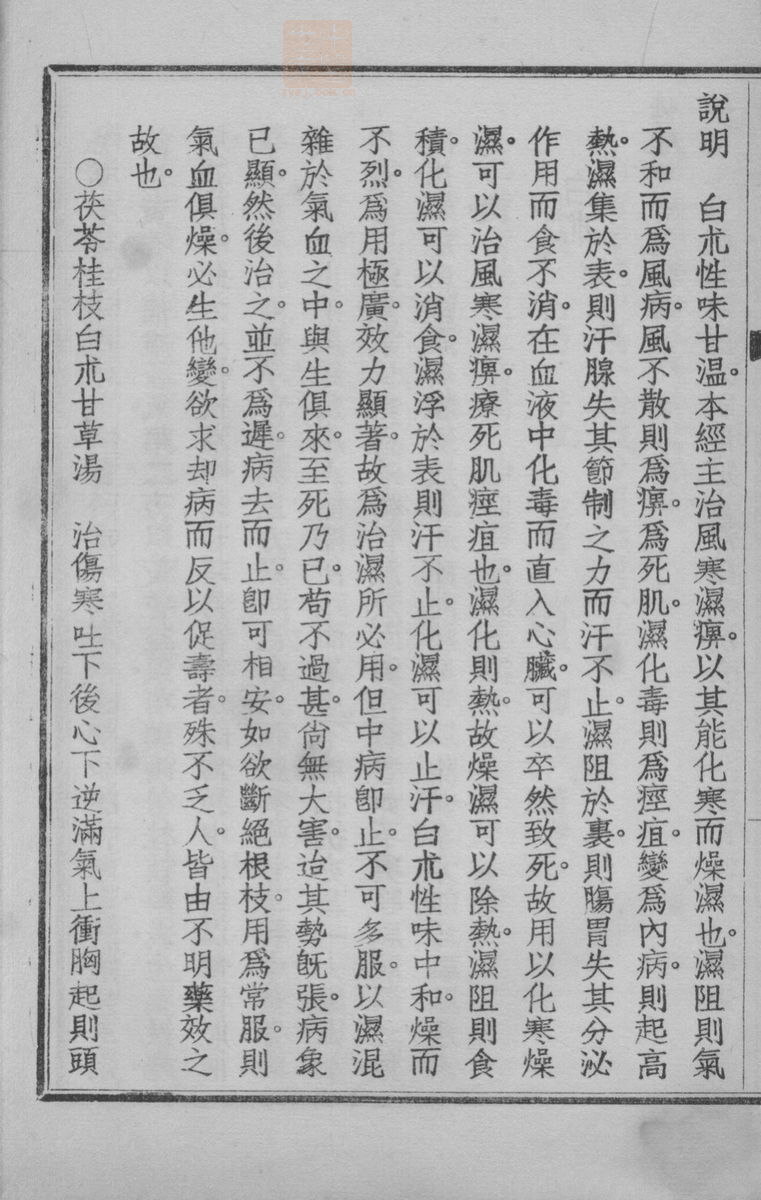 說明　白朮性味甘温。本經主治風寒濕痹。以其能化寒而燥濕也。濕阻則氣
不和而爲風病。風不散則爲痹。爲死肌。濕化毒則爲痙疽。變爲內病。則起高
熱。濕集於表。則汗腺失其節制之力而汗不止。濕阻於裏。則腸胃失其分泌
作用而食不消。在血液中化毒而直入心臟。可以卒然致死。故用以化寒燥
濕。可以治風寒濕痹。療死肌痙疽也。濕化則熱。故燥濕可以除熱。濕阻則食
積。化濕可以消食。濕浮於表則汗不止。化濕可以止汗。白朮性味中和。燥而
不烈。爲用極廣。效力顯著。故爲治濕所必用。但中病卽止。不可多服。以濕混
雜於氣血之中。與生俱來。至死乃已。苟不過甚。尙無大害。迨其勢旣張。病象
已顯。然後治之。並不爲遲。病去而止。卽可相安。如欲斷絕根枝。用爲常服。則
氣血俱燥。必生他變。欲求却病而反以促壽者。殊不乏人。皆由不明藥效之
故也。
○茯苓桂枝白朮甘草湯　治傷寒吐下後心下逆滿氣上衝胸起則頭